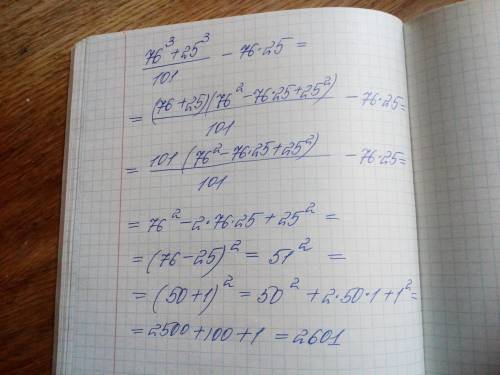 (76³+25³)/101 − 76·25 =
= (76+25)(76²−76·25+25²)/101 − 76·25=
= 101(76²−76·25+25²)/101 − 76·25=
= 76²−2·76·25+25² =
= (76−25)² = 51² =
= (50+1)² = 50² + 2·50·1+1² =
= 2500+100+1 = 2601